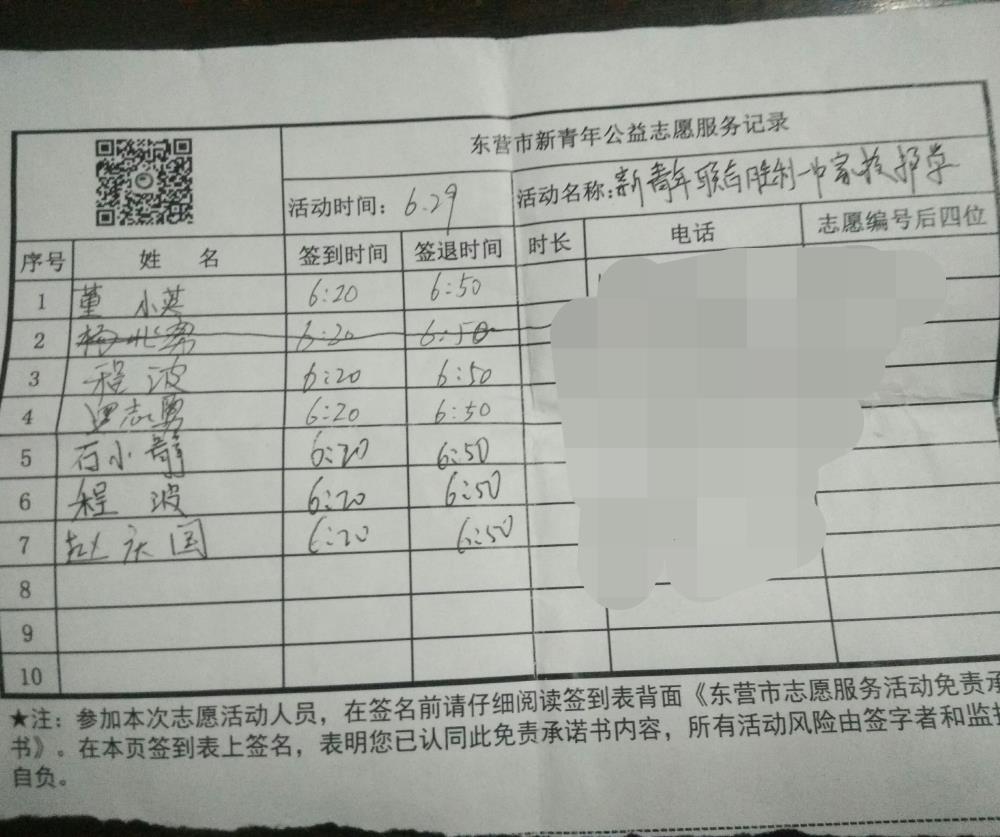 东营市新青年公益志愿服务记录
活动时间：6.29 活动名称：新青年联合胜利一中家校护学
序号 姓 名 签到时间 签退时间 时长 电话 志愿编号后四位
1 董小英 6:20 6:50
2 6:20 6:50
3 程波 6:20 6:50
4 志勇 6:20 6:50
5 石小静 6:20 6:50
6 程波 6:20 6:50
7 赵庆国 6:20 6:50
8
9
10
★注：参加本次志愿活动人员，在签名前请仔细阅读签到表背面《东营市志愿服务活动免责承
书》。在本页签到表上签名，表明您已认同此免责承诺书内容，所有活动风险由签字者和监护
自负。